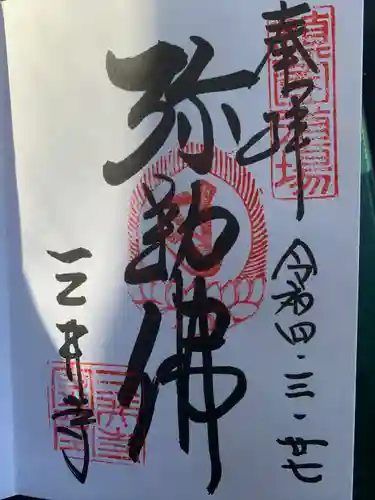 奉拝
令和四・三・廿七
弥勒佛
三井寺